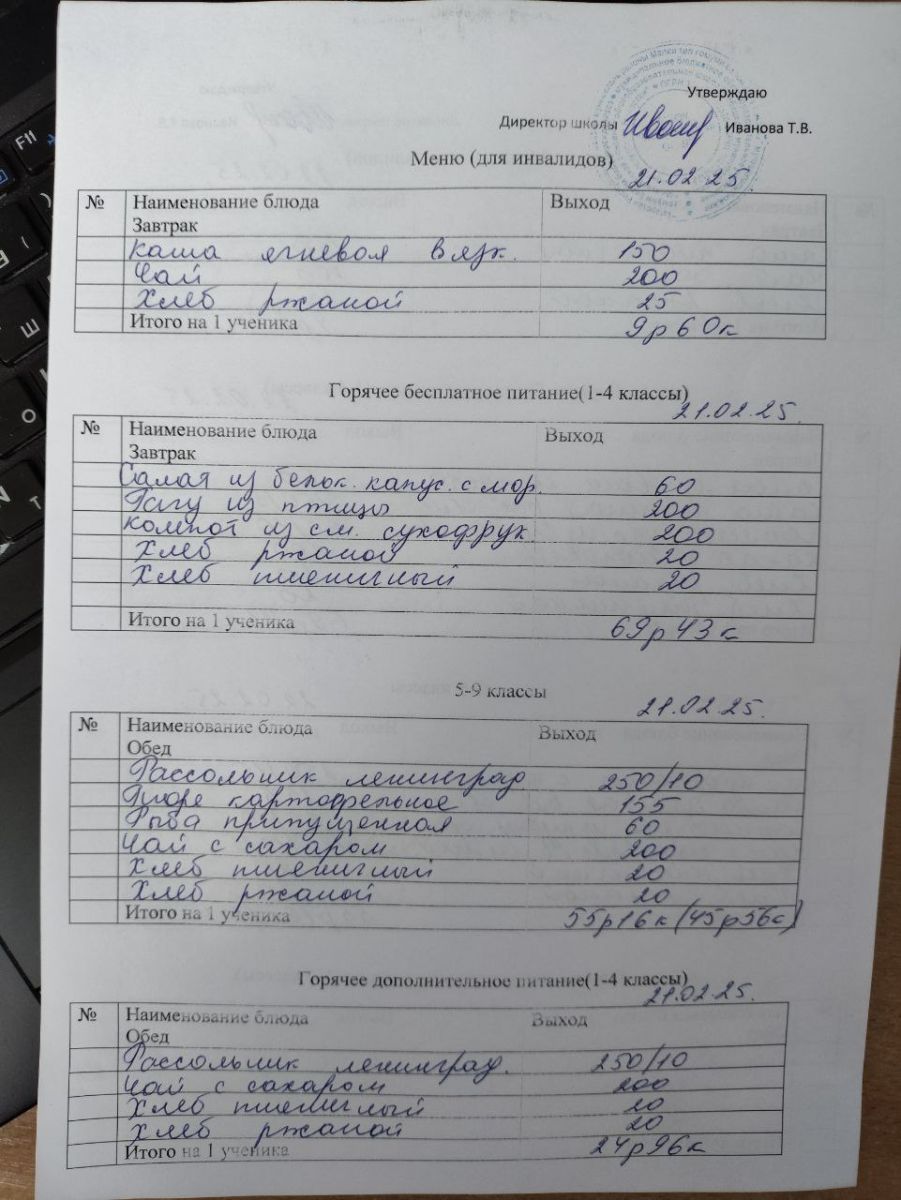 Утверждаю
Директор школы Иванова Т.В.
Меню (для инвалидов)
21.02.25
№ Наименование блюда Выход
Завтрак
Каша ячневая вязк. 150
Чай 200
Хлеб ржаной 25
Итого на 1 ученика 9р60к
Горячее бесплатное питание(1-4 классы)
21.02.25.
№ Наименование блюда Выход
Завтрак
Салат из белок. капус. с мор. 60
Рагу из птицы 200
Компот из см. сухофрук 200
Хлеб ржаной 20
Хлеб пшеничный 20
Итого на 1 ученика 69р43к
5-9 классы
21.02.25.
№ Наименование блюда Выход
Обед
Рассольник ленинград 250/10
Пюре картофельное 155
Рыба припущенная 60
Чай с сахаром 200
Хлеб пшеничный 20
Хлеб ржаной 20
Итого на 1 ученика 55р16к (45р56к)
Горячее дополнительное питание(1-4 классы)
21.02.25.
№ Наименование блюда Выход
Обед
Рассольник ленинград. 250/10
Чай с сахаром 200
Хлеб пшеничный 20
Хлеб ржаной 20
Итого на 1 ученика 24р96к
F11
Ш
О
Т